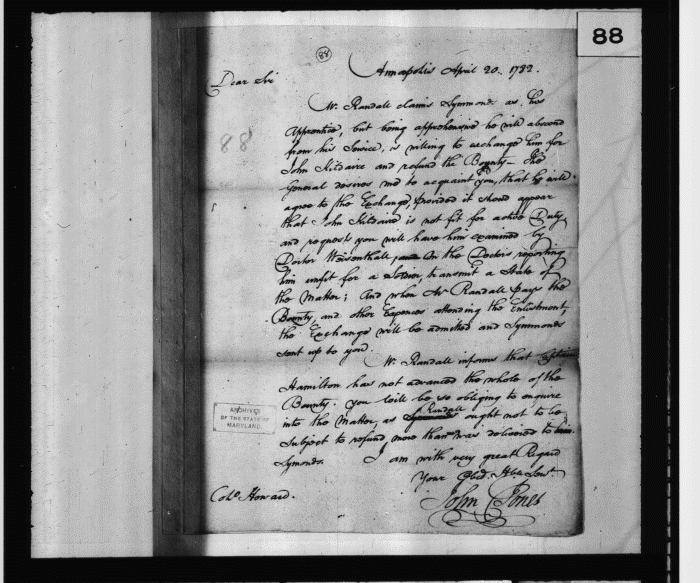 88
88
Annapolis April 20. 1782.
Dear Sir
Mr. Randall claims Symmonds as his
Apprentice, but being apprehensive he will abscond
88
from his Service, is willing to exchange him for
John Kildaire and refund the Bounty — The
General desires me to acquaint you, that he will
agree to the Exchange, provided it should appear
that John Kildaire is not fit for active Duty
and requests you will have him examined by
Doctor Weisenthall, on the Doctors reporting
him unfit for a Soldier, transmit a State of
the Matter; And when Mr Randall pays the
Bounty, and other Expences attending the Enlistment,
the Exchange will be admitted and Symmonds
sent up to you.
Mr. Randall informs that
Hamilton has not advanced the whole of the
Bounty. you will be so obliging to enquire
into the Matter, as Randall ought not to be
subject to refund more than was delivered to
Symonds.
I am with very great Regard
Your Obed. Hble Servt.
John Jones
Colo. Howard.
ARCHIVES
OF THE STATE OF
MARYLAND